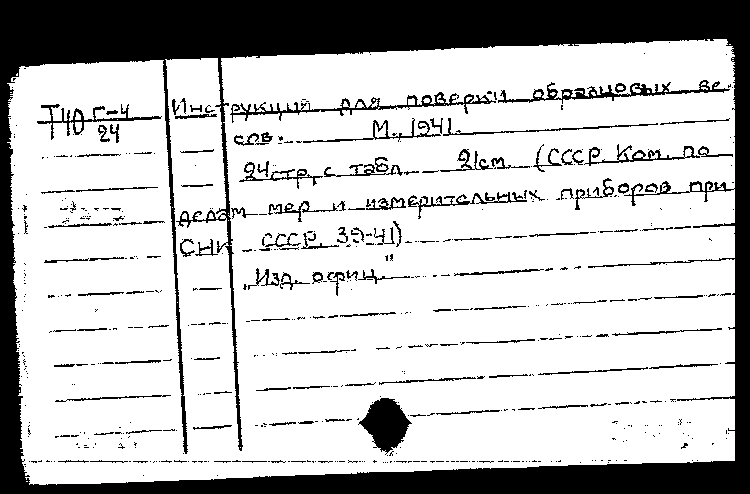 Т40 Г-4
24
Инструкция для поверки образцовых ве-
сов. М., 1941.
24стр. с табл. 21см. (СССР. Ком. по
делам мер и измерительных приборов при
СНК СССР. 39-41)
„Изд. офиц."